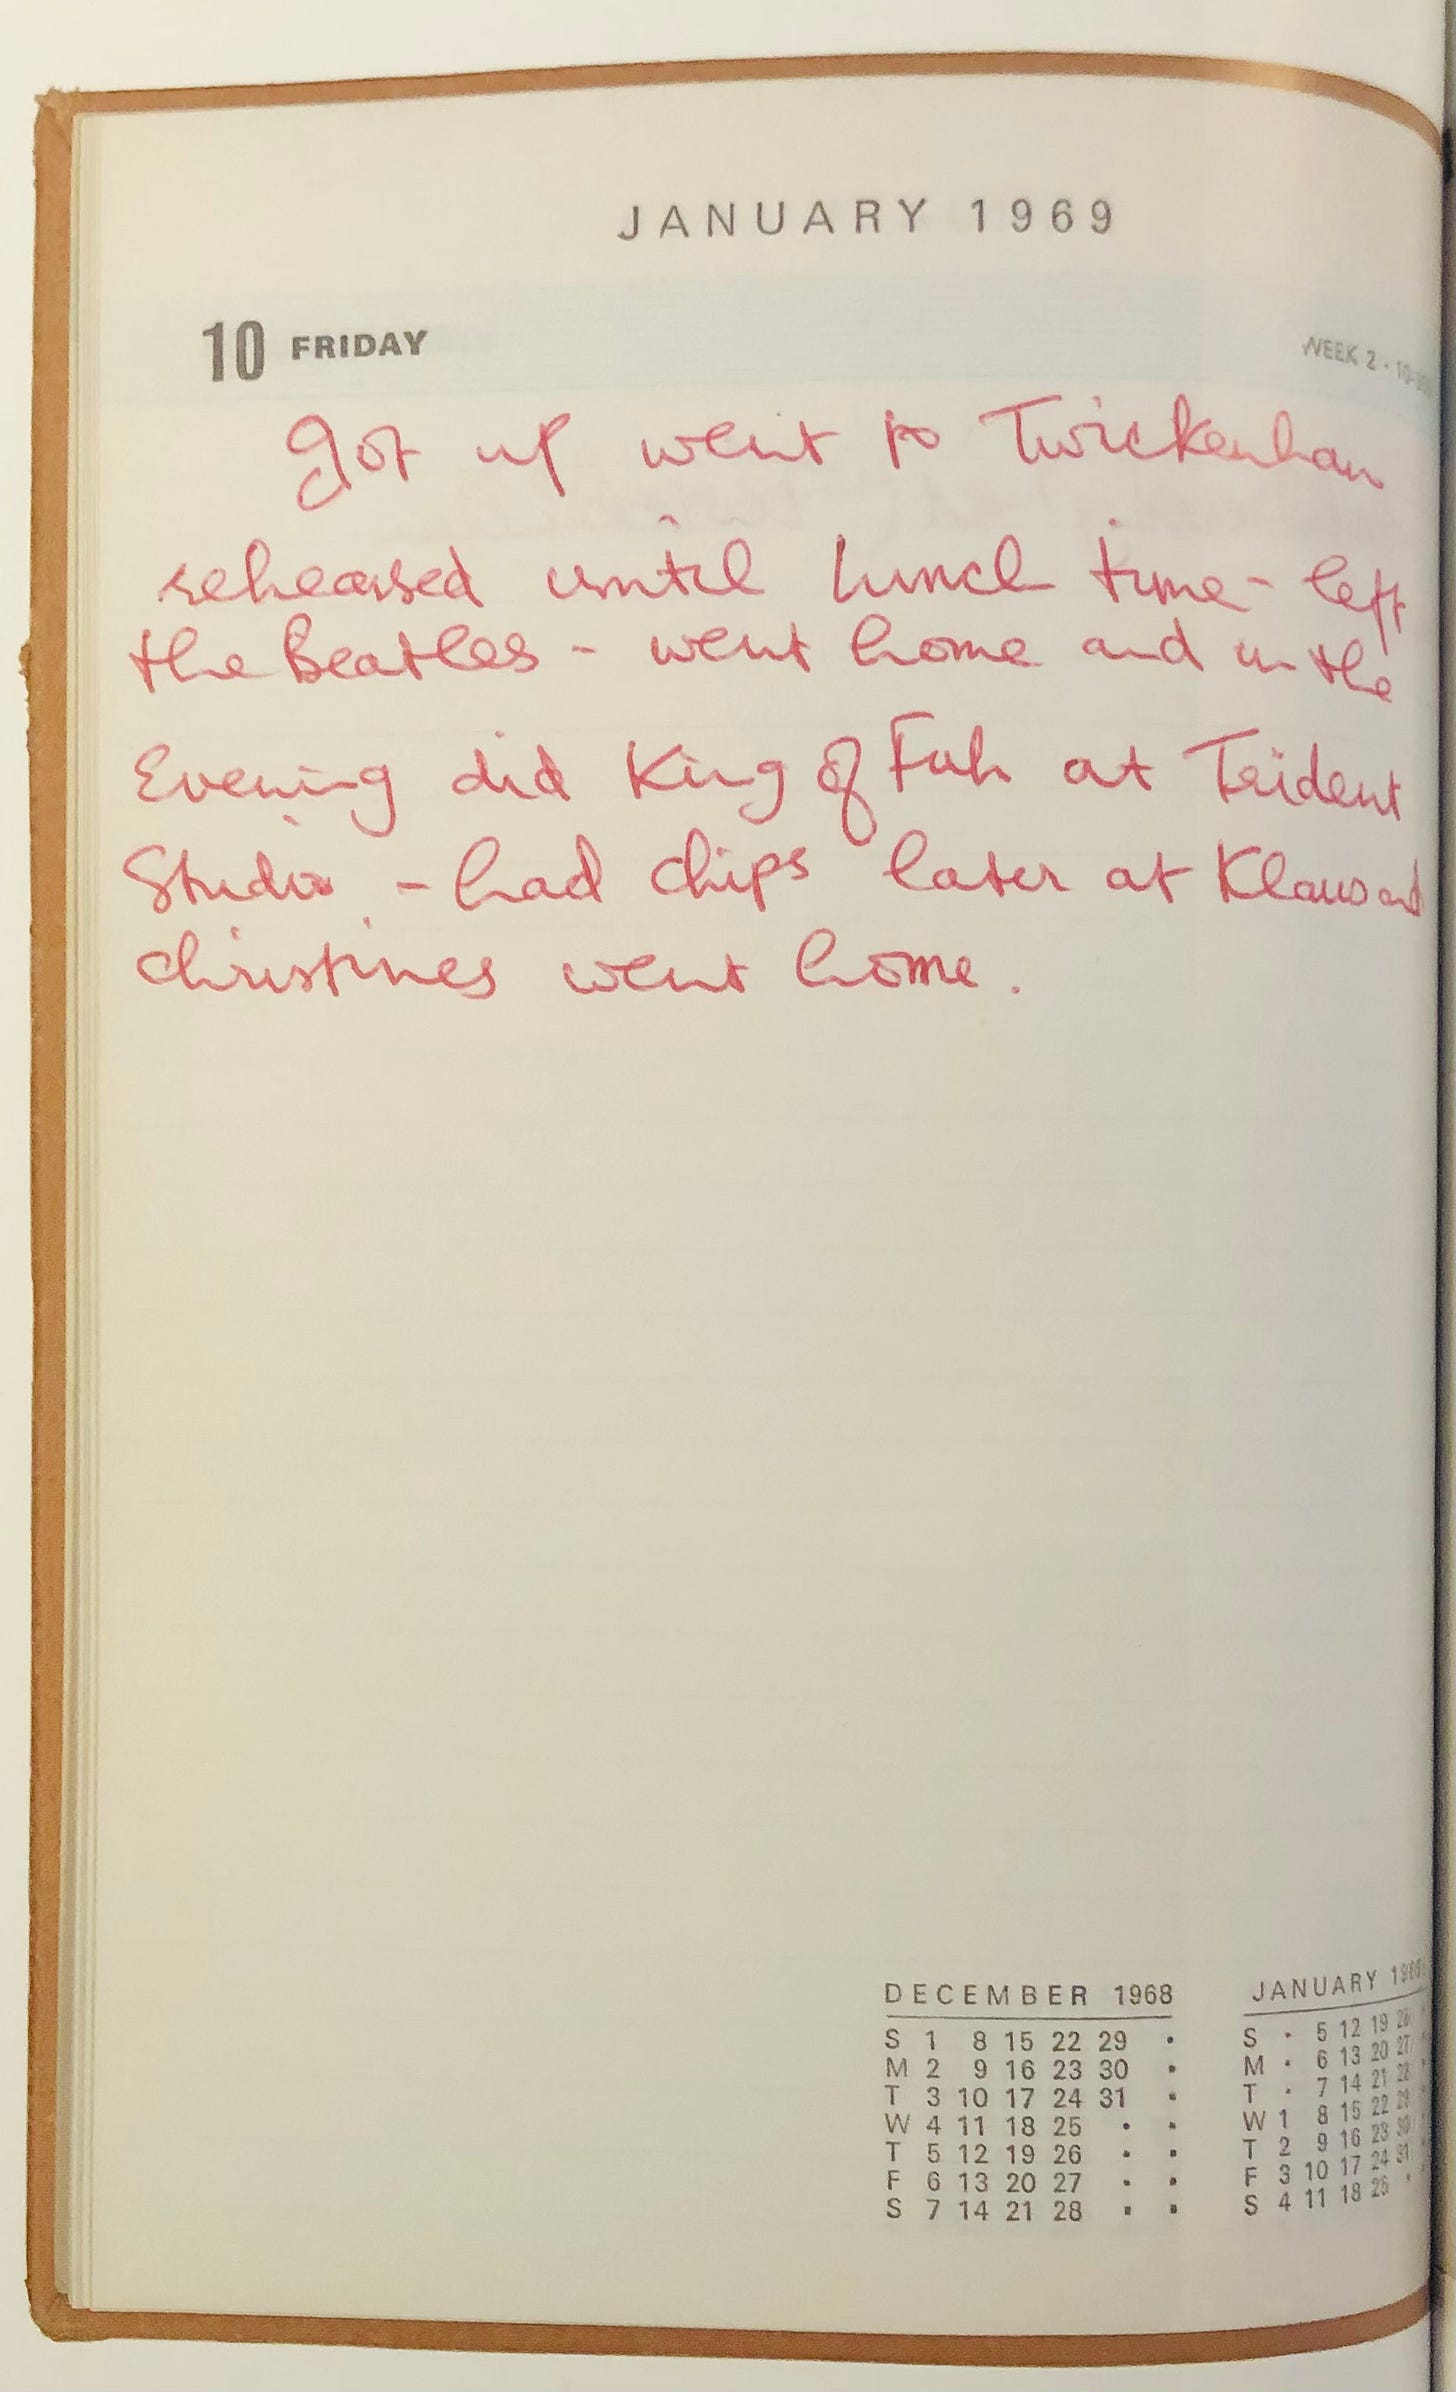 JANUARY 1969
10 FRIDAY
WEEK 2 ·
got up went to Twickenham
rehearsed until lunch time - left
the Beatles - went home and in the
Evening did King of Fuh at Trident
Studio - had chips later at Klaus and
christines went home.
DECEMBER 1968 JANUARY 1969
S 1 8 15 22 29 · S · 5 12 19 26
M 2 9 16 23 30 · M · 6 13 20 27
T 3 10 17 24 31 · T · 7 14 21 28
W 4 11 18 25 · · W 1 8 15 22 29
T 5 12 19 26 · · T 2 9 16 23 30
F 6 13 20 27 · · F 3 10 17 24 31
S 7 14 21 28 · · S 4 11 18 25 ·